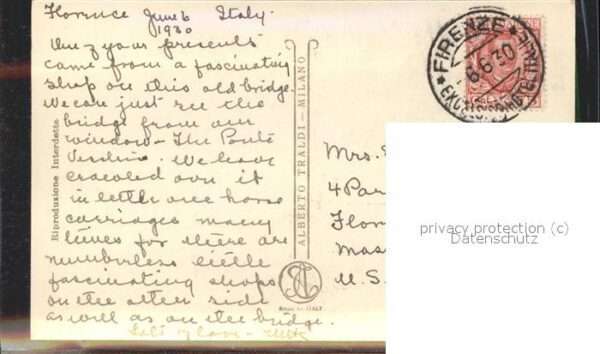 Florence June 6 Italy.
1930
One of your presents
came from a fascinating
shop on this old bridge.
We can just see the
bridge from our
window - The Ponte
Vecchio. We have
crawled over it
in little one horse
carriages many
times for there are
numberless little
fascinating shops
on the other side
as well as on the bridge.
Riproduzione Interdetta
ALBERTO TRALDI - MILANO
FIRENZE
6.6.30
Mrs.
4 Par
Flor
Mass
U.S.
privacy protection (c)
Datenschutz